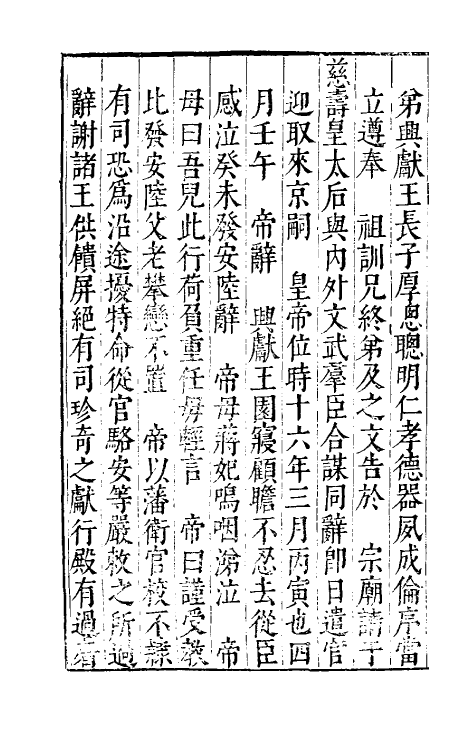 弟興獻王長子厚熜聰明仁孝德器夙成倫序當
立遵奉　祖訓兄終弟及之文告於　宗廟請于
慈壽皇太后與內外文武羣臣合謀同辭卽日遣官
迎取來京嗣　皇帝位時十六年三月丙寅也四
月壬午　帝辭　興獻王園寢顧瞻不忍去從臣
感泣癸未發安陸辭　帝母蔣妃嗚咽涕泣　帝
母曰吾兒此行荷負重任毋輕言　帝曰謹受敎
比發安陸父老攀戀不置　帝以藩衛官校不隸
有司恐爲沿途擾特命從官駱安等嚴敕之所過
辭謝諸王供饋屏絕有司珍奇之獻行殿有過